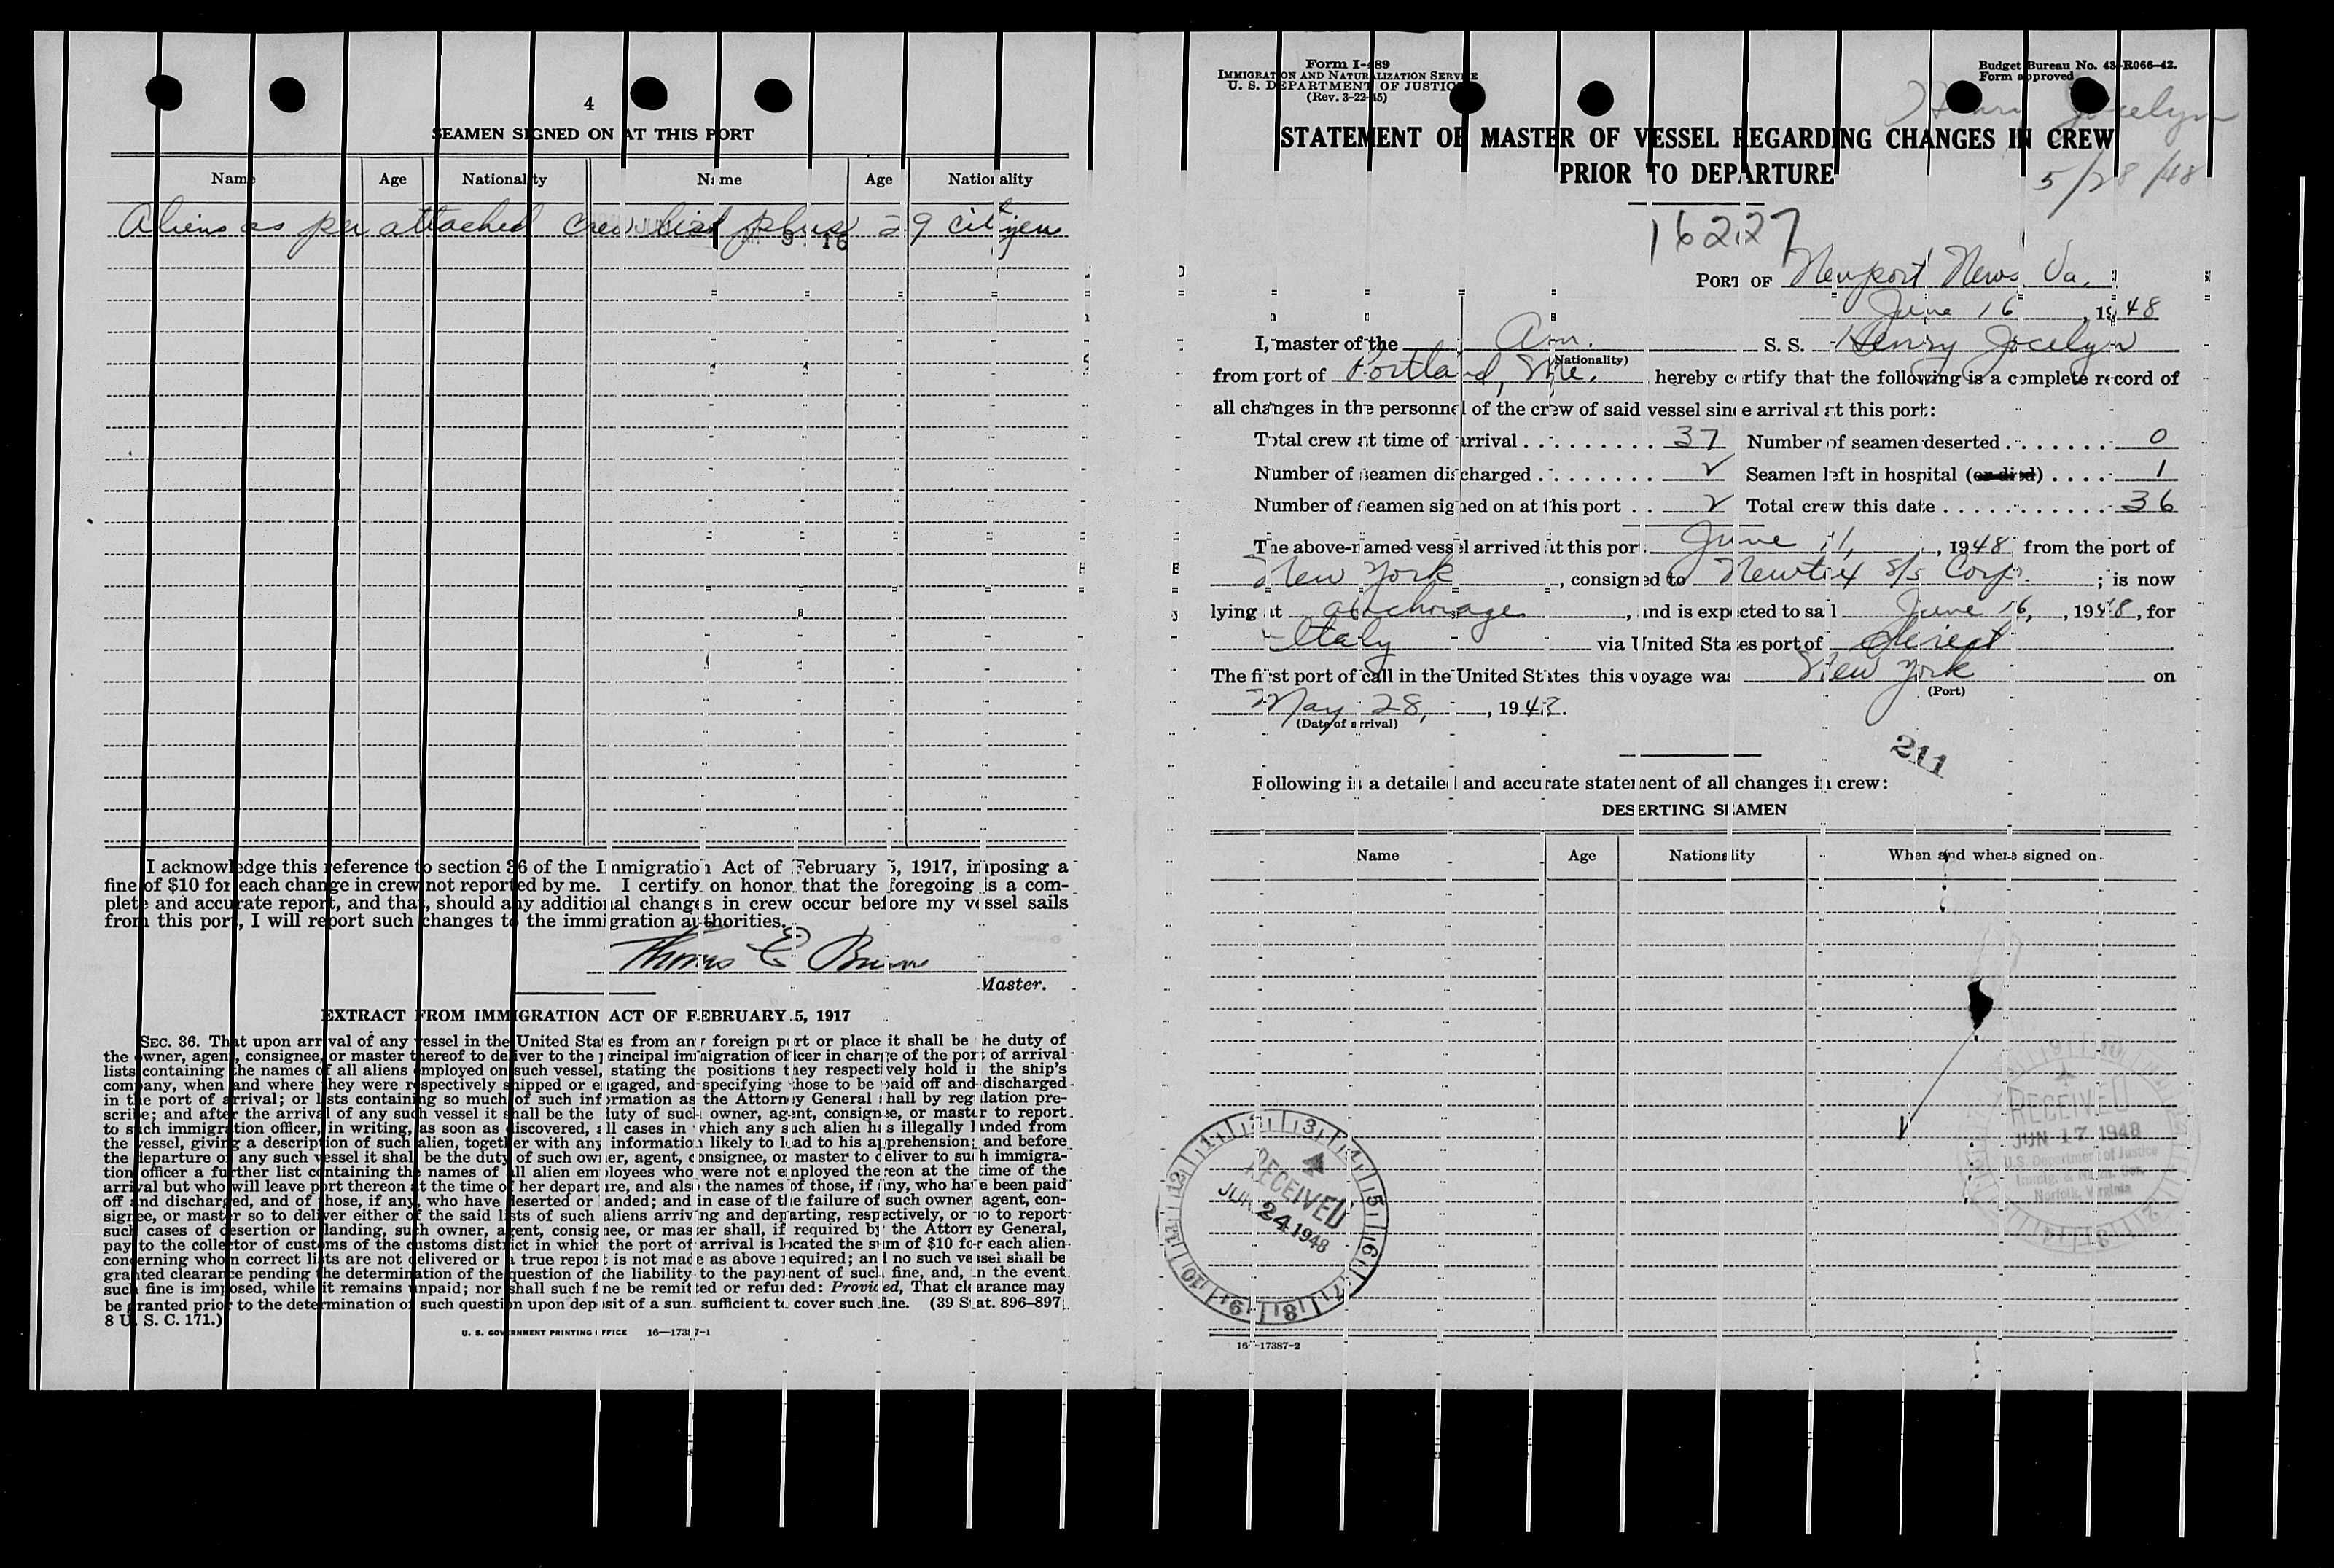 4
SEAMEN SIGNED ON AT THIS PORT
Name Age Nationality Name Age Nationality
Aliens as per attached crew list plus 29 citizens
9 16
I acknowledge this reference to section 36 of the Immigration Act of February 5, 1917, imposing a
fine of $10 for each change in crew not reported by me. I certify on honor that the foregoing is a com-
plete and accurate report, and that, should any additional changes in crew occur before my vessel sails
from this port, I will report such changes to the immigration authorities.
Thomas E
Master.
EXTRACT FROM IMMIGRATION ACT OF FEBRUARY 5, 1917
SEC. 36. That upon arrival of any vessel in the United States from any foreign port or place it shall be the duty of
the owner, agent, consignee, or master thereof to deliver to the principal immigration officer in charge of the port of arrival
lists containing the names of all aliens employed on such vessel, stating the positions they respectively hold in the ship's
company, when and where they were respectively shipped or engaged, and specifying those to be paid off and discharged
in the port of arrival; or lists containing so much of such information as the Attorney General shall by regulation pre-
scribe; and after the arrival of any such vessel it shall be the duty of such owner, agent, consignee, or master to report
to such immigration officer, in writing, as soon as discovered, all cases in which any such alien has illegally landed from
the vessel, giving a description of such alien, together with any information likely to lead to his apprehension; and before
the departure of any such vessel it shall be the duty of such owner, agent, consignee, or master to deliver to such immigra-
tion officer a further list containing the names of all alien employees who were not employed thereon at the time of the
arrival but who will leave port thereon at the time of her departure, and also the names of those, if any, who have been paid
off and discharged, and of those, if any, who have deserted or landed; and in case of the failure of such owner, agent, con-
signee, or master so to deliver either of the said lists of such aliens arriving and departing, respectively, or so to report
such cases of desertion or landing, such owner, agent, consignee, or master shall, if required by the Attorney General,
pay to the collector of customs of the customs district in which the port of arrival is located the sum of $10 for each alien
concerning whom correct lists are not delivered or a true report is not made as above required; and no such vessel shall be
granted clearance pending the determination of the question of the liability to the payment of such fine, and, in the event
such fine is imposed, while it remains unpaid; nor shall such fine be remitted or refunded: Provided, That clearance may
be granted prior to the determination of such question upon deposit of a sum sufficient to cover such fine. (39 Stat. 896–897;
8 U. S. C. 171.)
U. S. GOVERNMENT PRINTING OFFICE 16—17387-1
Form I-489
IMMIGRATION AND NATURALIZATION SERVICE
U. S. DEPARTMENT OF JUSTICE
(Rev. 3-22-45)
Budget Bureau No. 43-R066-42.
Form approved
Henry Jocelyn
STATEMENT OF MASTER OF VESSEL REGARDING CHANGES IN CREW
PRIOR TO DEPARTURE
5/28/48
16227
PORT OF Newport News Va.
June 16, 1948
I, master of the Am. S. S. Henry Jocelyn
(Nationality)
from port of Portland, Me. hereby certify that the following is a complete record of
all changes in the personnel of the crew of said vessel since arrival at this port:
Total crew at time of arrival . . . . . . . . . 37 Number of seamen deserted . . . . . . . 0
Number of seamen discharged . . . . . . . . 2 Seamen left in hospital (or died) . . . . 1
Number of seamen signed on at this port . . 2 Total crew this date . . . . . . . . . . . . 36
The above-named vessel arrived at this port June 11, 1948 from the port of
New York, consigned to Newtex S/S Corp.; is now
lying at anchorage, and is expected to sail June 16, 1948, for
Italy via United States port of direct
The first port of call in the United States this voyage was New York on
(Port)
May 28, 1948.
(Date of arrival)
211
Following is a detailed and accurate statement of all changes in crew:
DESERTING SEAMEN
Name Age Nationality When and where signed on
RECEIVED
JUN 17 1948
U.S. Department of Justice
Immig. & Natz. Ser.
Norfolk, Virginia
RECEIVED
JUN 24 1948
16—17387-2